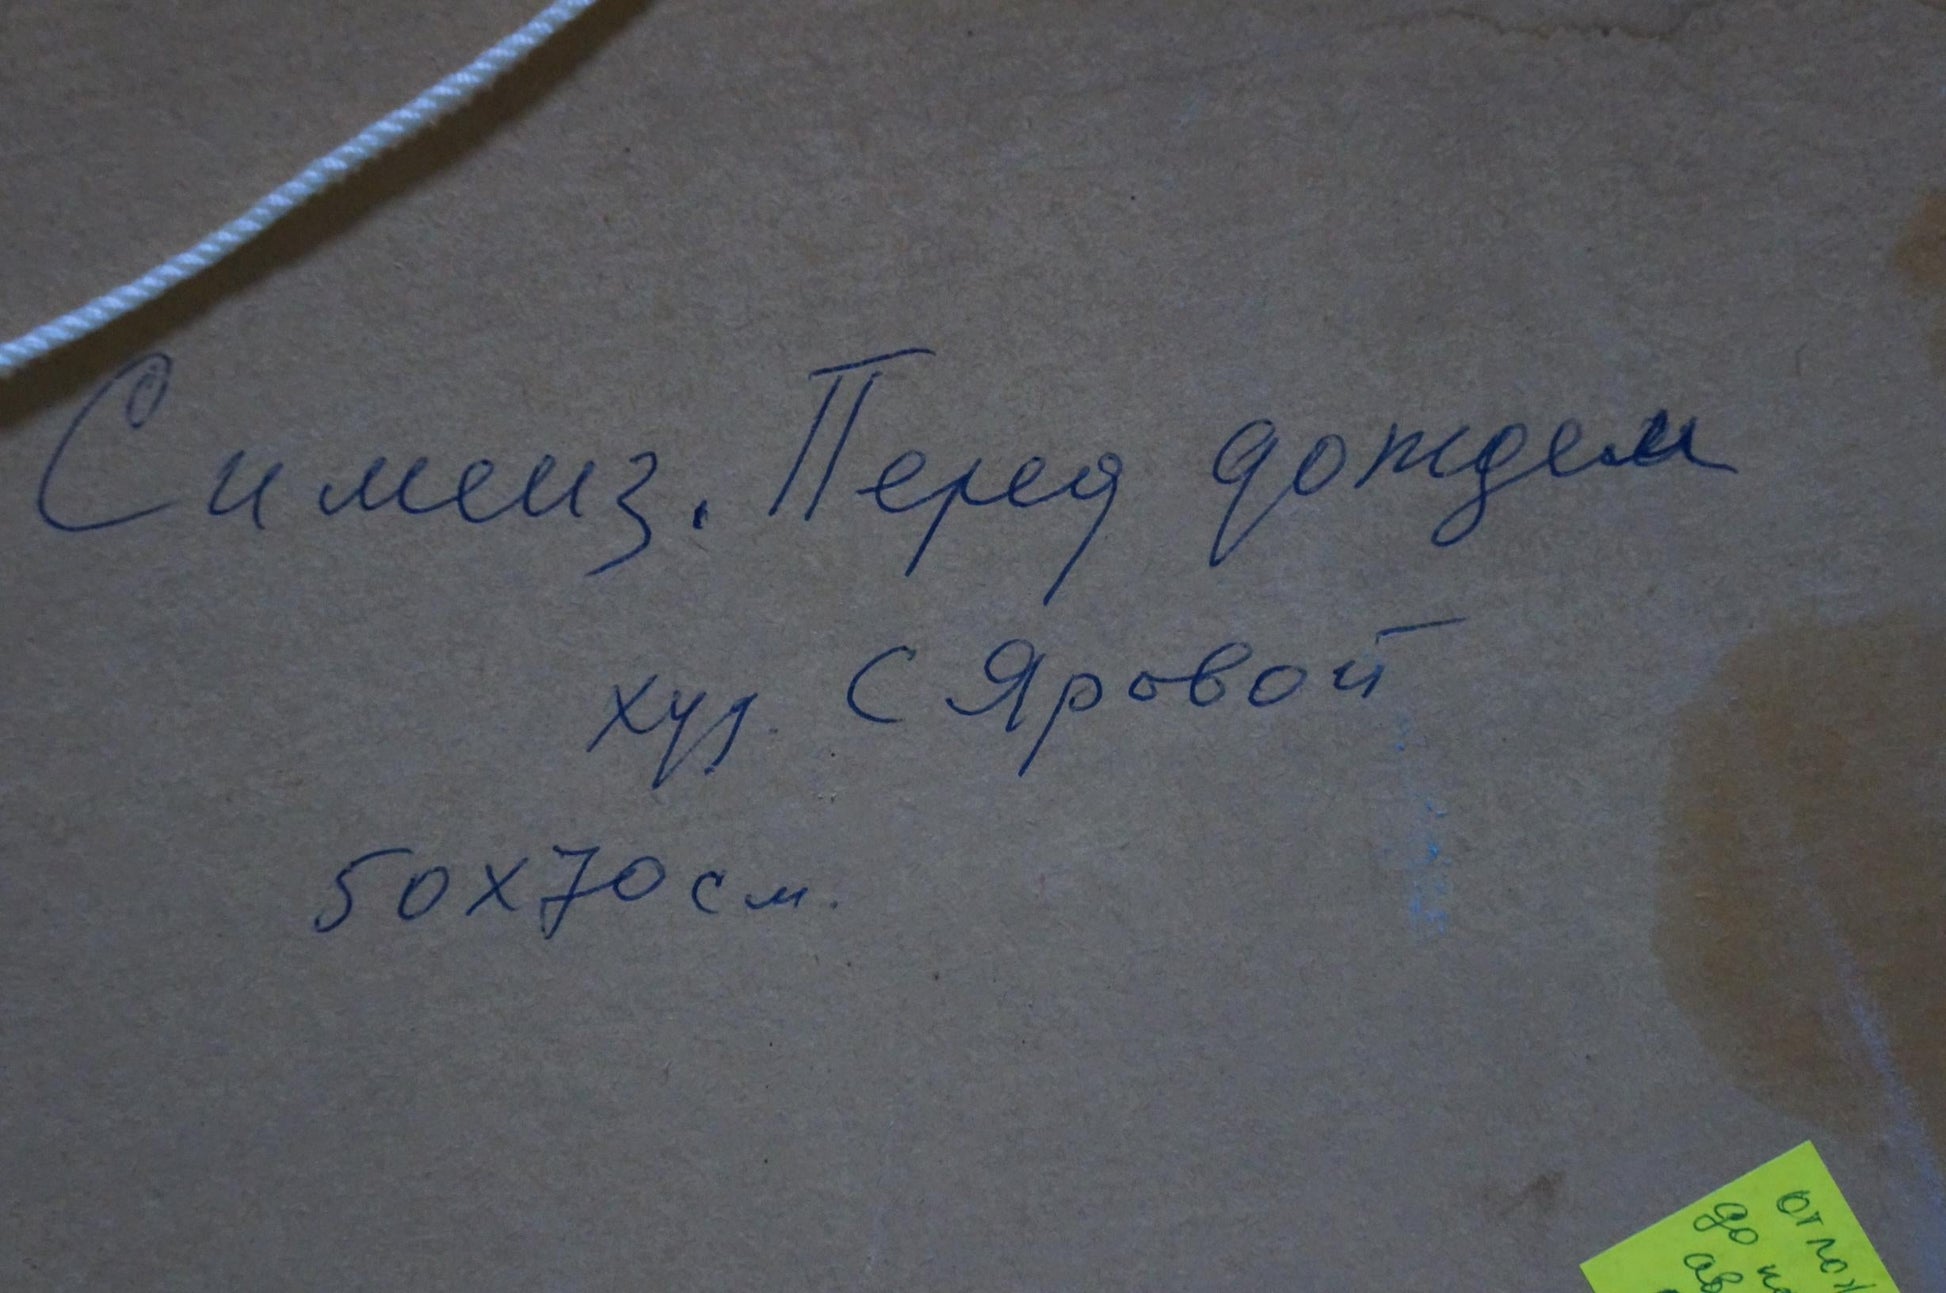 Симеиз. Перед дождем
худ. С Яровой
50х70см.
до